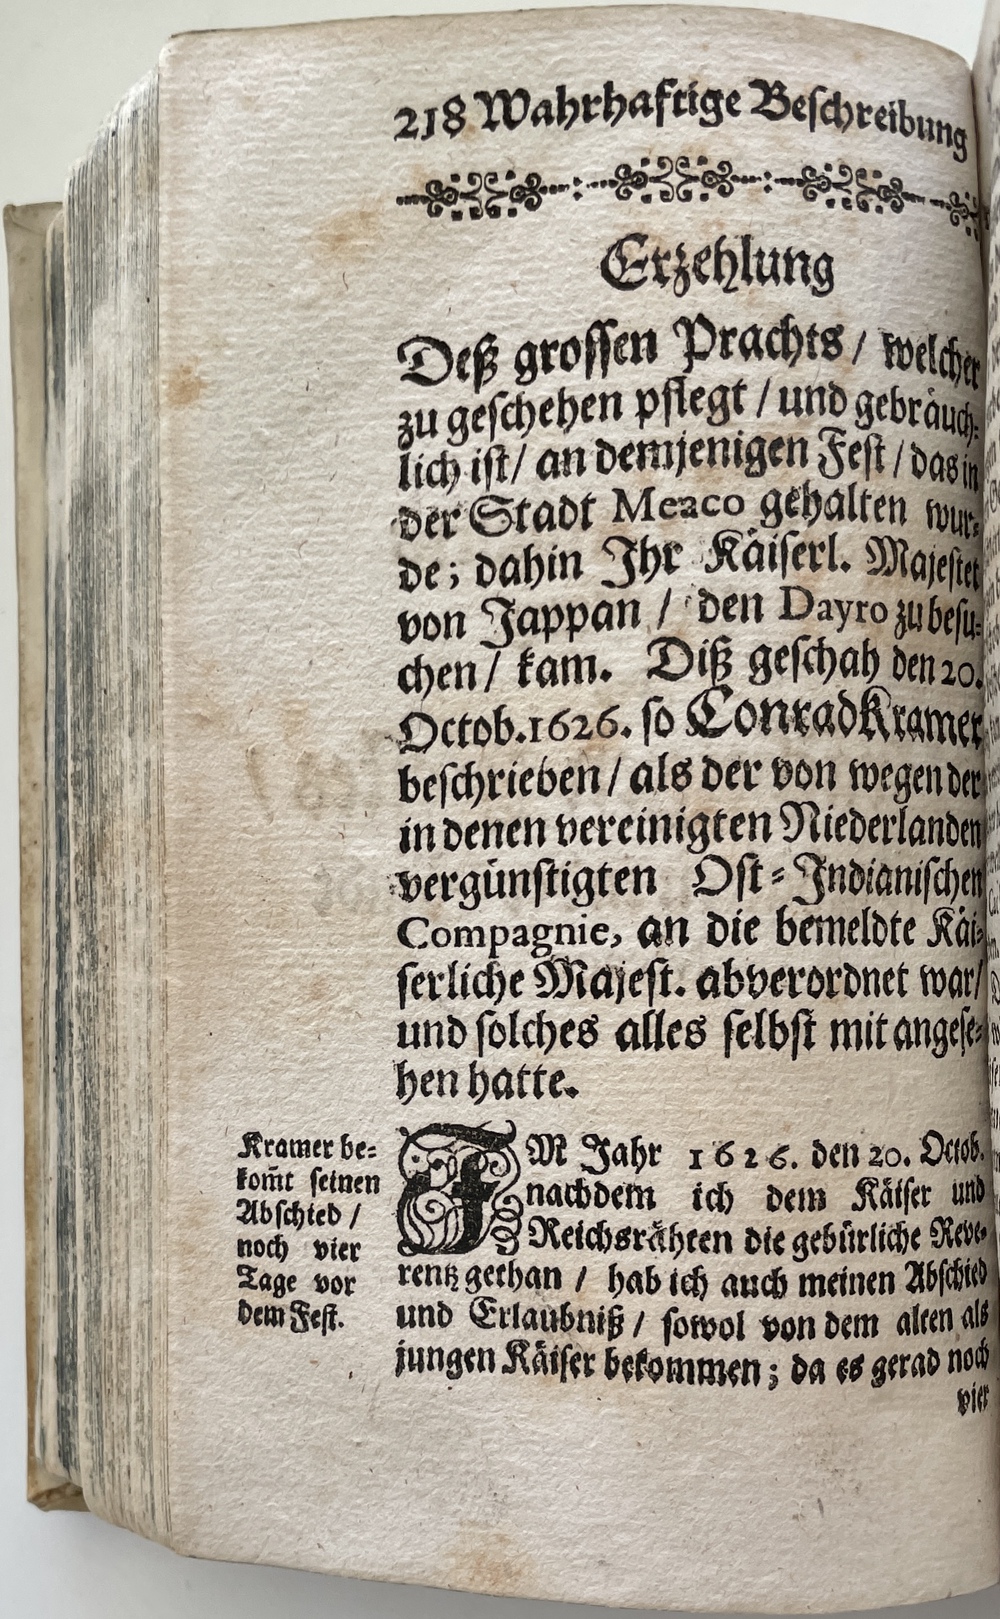 218 Wahrhaftige Beschreibung
Erzehlung
Deß grossen Prachts / welcher
zu geschehen pflegt / und gebräuch-
lich ist / an demjenigen Fest / das in
der Stadt Meaco gehalten wur-
de; dahin Ihr Käiserl. Majestet
von Jappan / den Dayro zu besu-
chen / kam. Diß geschah den 20.
Octob. 1626. so Conrad Kramer
beschrieben / als der von wegen der
in denen vereinigten Niederlanden
vergünstigten Ost-Indianischen
Compagnie, an die bemeldte Käi-
serliche Majest. abverordnet war /
und solches alles selbst mit angese-
hen hatte.
Kramer be-
kom̃t seinen
Abschied /
noch vier
Tage vor
dem Fest.
IM Jahr 1626. den 20. Octob.
nachdem ich dem Käiser und
Reichsrähten die gebürliche Reve-
rentz gethan / hab ich auch meinen Abschied
und Erlaubniß / sowol von dem alten als
jungen Käiser bekommen; da es gerad noch
vier